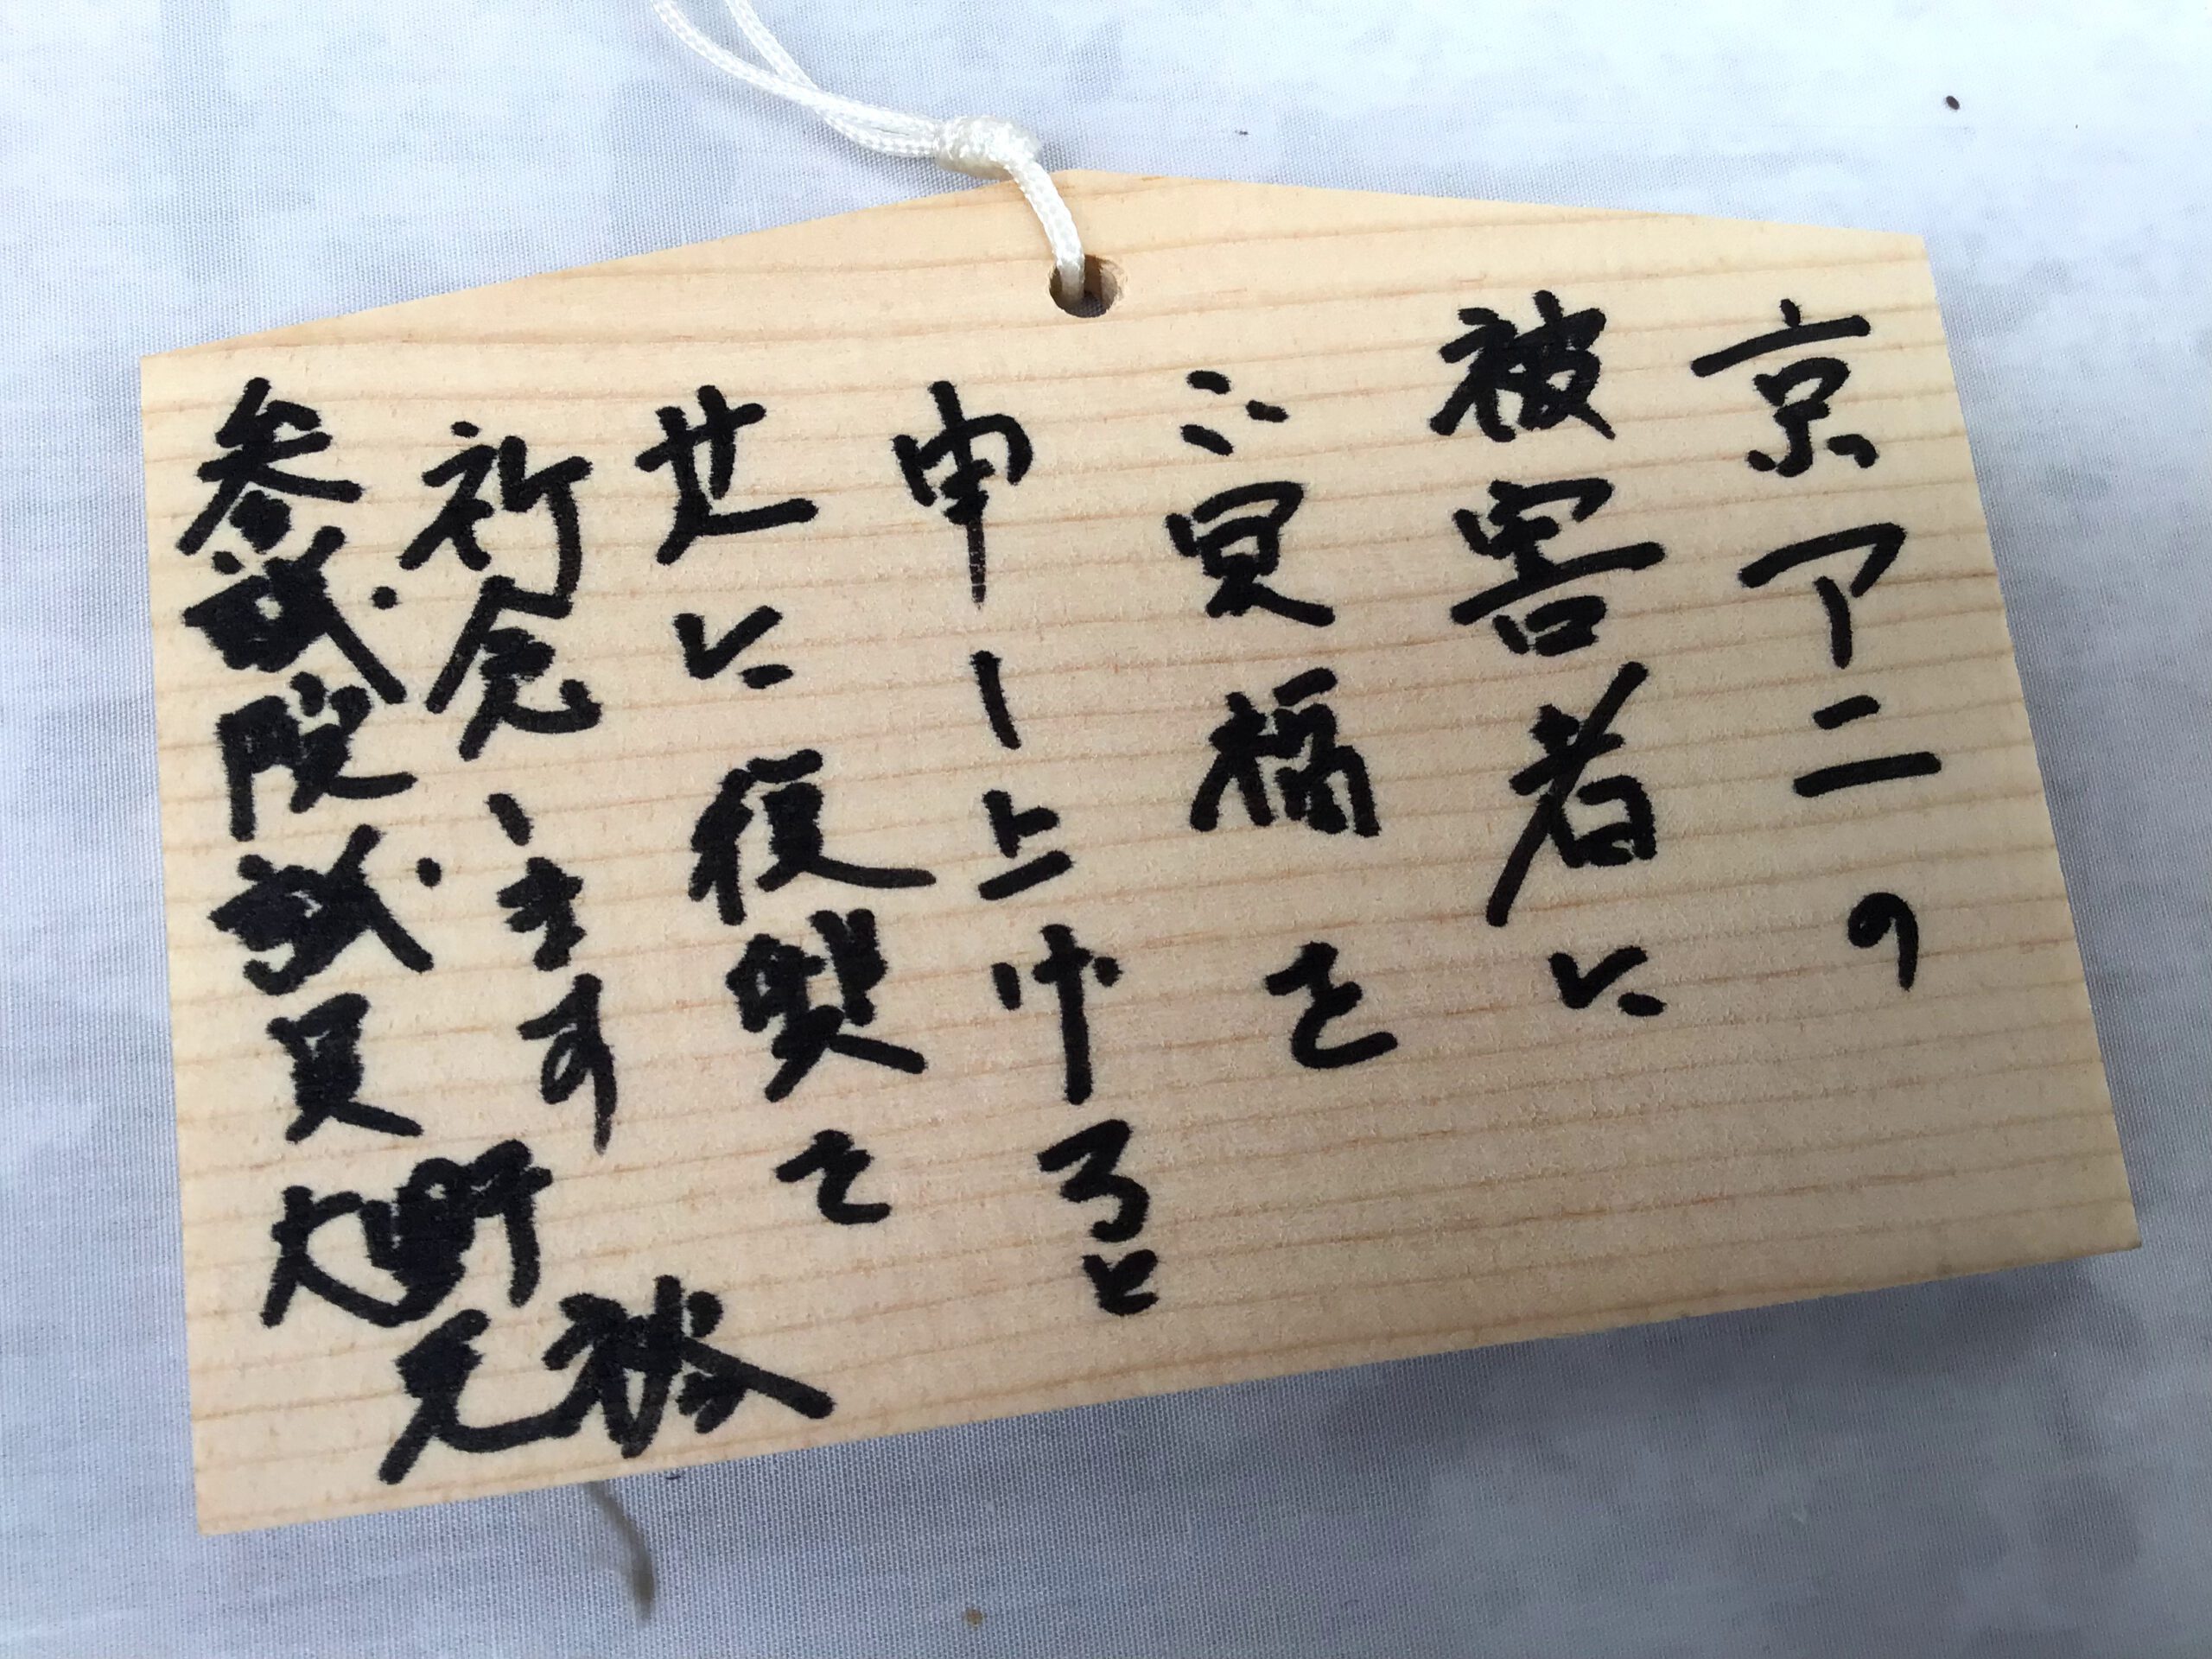 京アニの
被害者に
ご冥福を
申し上げると
共に復興を
祈念します
参議院議員 大野元裕